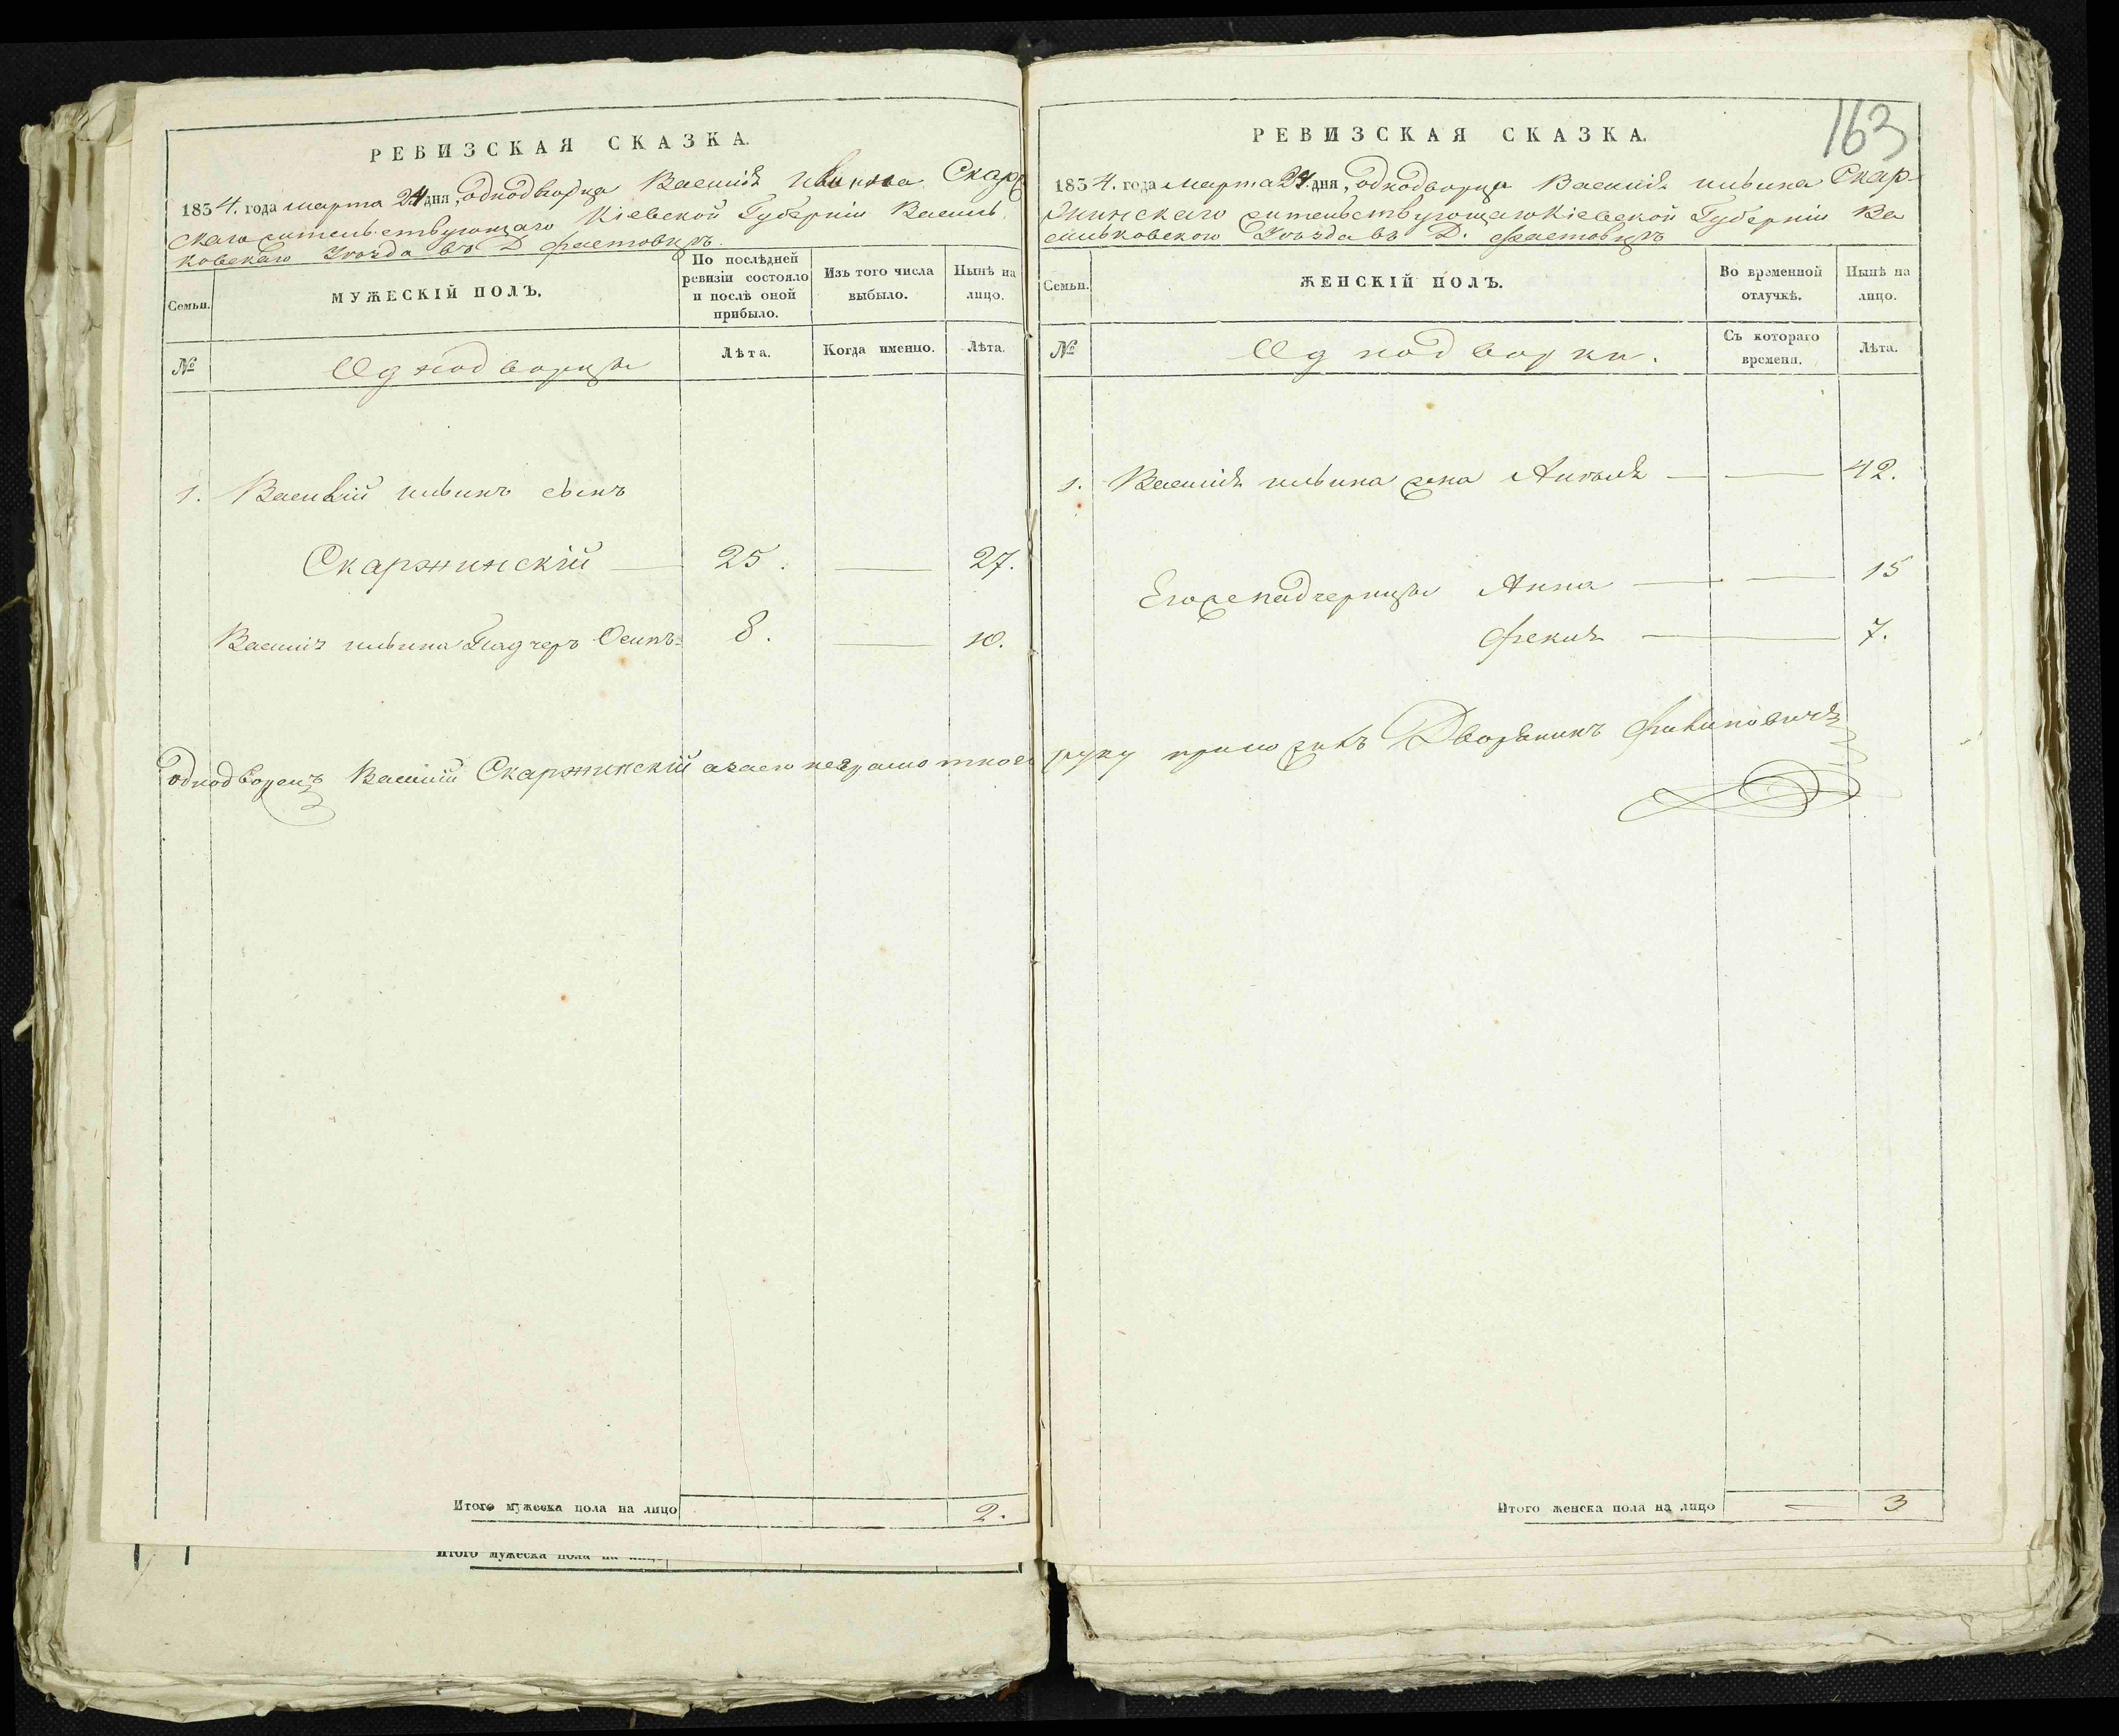 РЕВИЗСКАЯ СКАЗКА.
1834. года марта 24 дня, однодворца Василія Ильина Скар
скаго жительствующаго Кіевской Губерніи Василь
ковскаго Уѣзда въ Д Фастовцѣ.
Семьи.
МУЖЕСКІЙ ПОЛЪ.
По послѣдней ревизіи состояло и послѣ оной прибыло.
Изъ того числа выбыло.
Нынѣ на лицо.
№
Однодворцы
Лѣта.
Когда именно.
Лѣта.
1. Василій Ильинъ сынъ
Скаржинскій — 25. — 27.
Василія Ильина Падчеръ Осипъ 8. — 10.
Однодворецъ Василій Скаржинскій а за его неграмотное
Итого мужеска пола на лицо 2.
Итого мужеска пола на лицо
163
РЕВИЗСКАЯ СКАЗКА.
1834. года марта 24. дня, однодворца Василія Ильина Скар-
жинскаго жительствующаго Кіевской Губерніи Ва
сильковского Уѣзда въ Д. Фастовцѣ
Семьи.
ЖЕНСКІЙ ПОЛЪ.
Во временной отлучкѣ.
Нынѣ на лицо.
№
Однодворки.
Съ котораго времени.
Лѣта.
1. Василія Ильина жена — — 42.
Его же падчерицы Анна — — 15
7.
руку приложилъ Дворянинъ Филиповичъ
Итого женска пола на лицо — 3